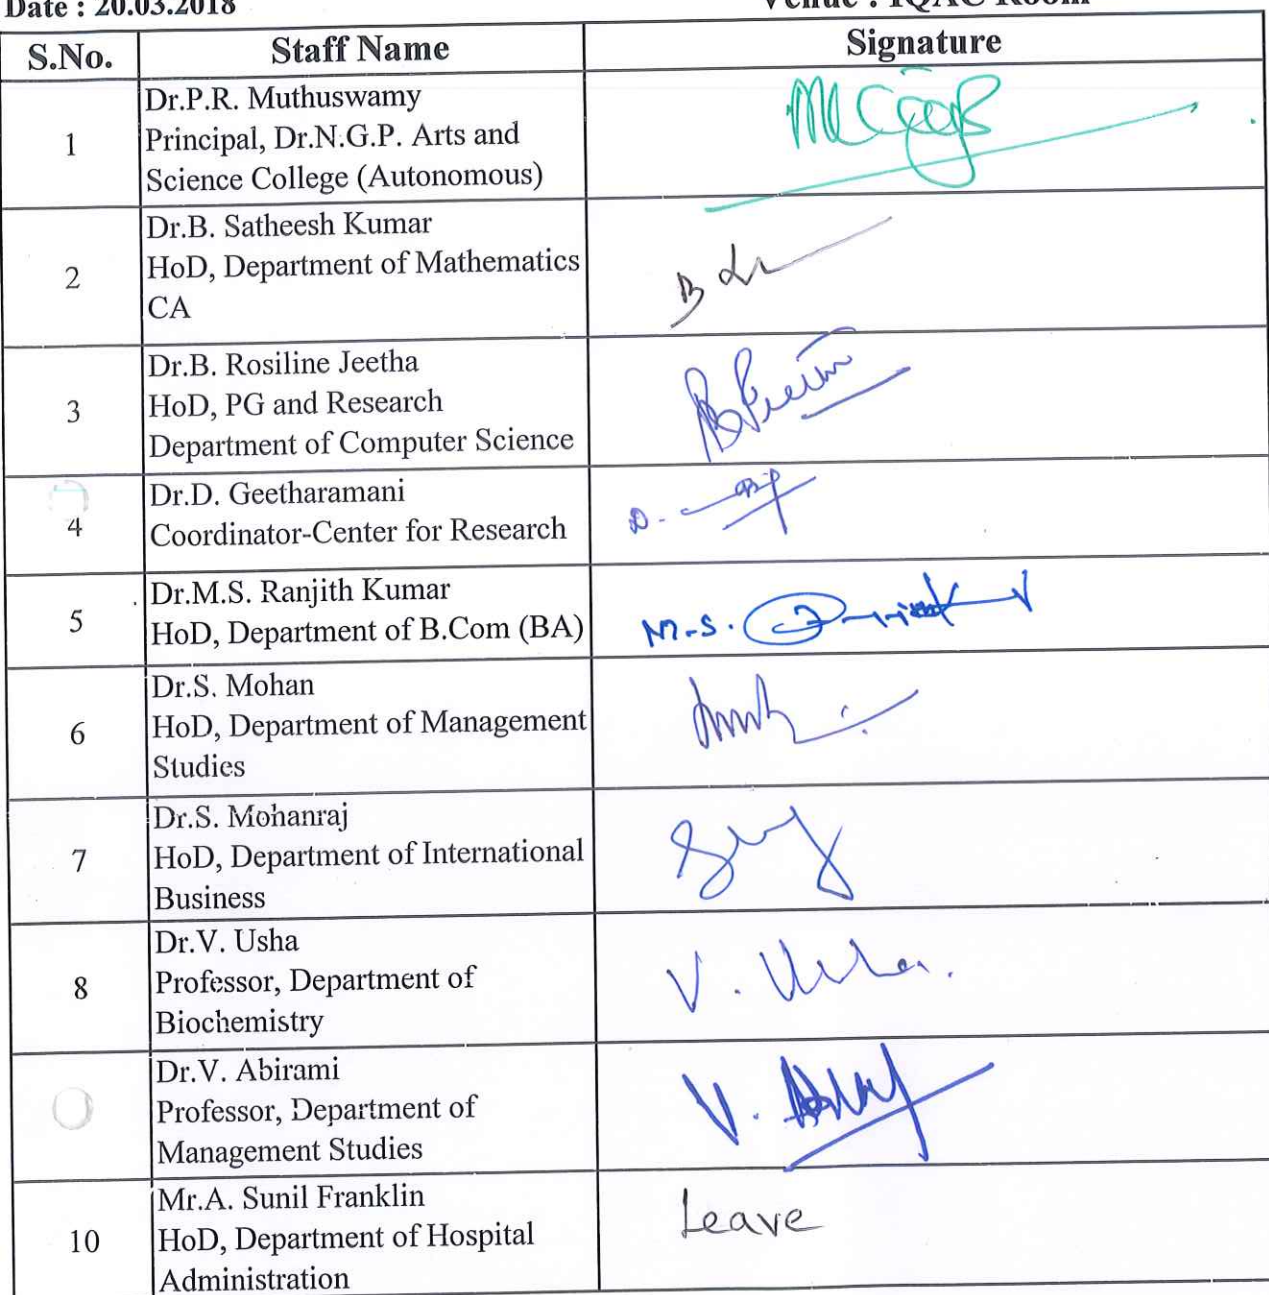 Date : 20.03.2018 Venue : IQAC Room
S.No. Staff Name Signature
1
Dr.P.R. Muthuswamy
Principal, Dr.N.G.P. Arts and
Science College (Autonomous)
2
Dr.B. Satheesh Kumar
HoD, Department of Mathematics
CA
3
Dr.B. Rosiline Jeetha
HoD, PG and Research
Department of Computer Science
4
Dr.D. Geetharamani
Coordinator-Center for Research
5
Dr.M.S. Ranjith Kumar
HoD, Department of B.Com (BA)
M.S.
6
Dr.S. Mohan
HoD, Department of Management
Studies
7
Dr.S. Mohanraj
HoD, Department of International
Business
8
Dr.V. Usha
Professor, Department of
Biochemistry
V. Usha.
Dr.V. Abirami
Professor, Department of
Management Studies
V.
10
Mr.A. Sunil Franklin
HoD, Department of Hospital
Administration
Leave